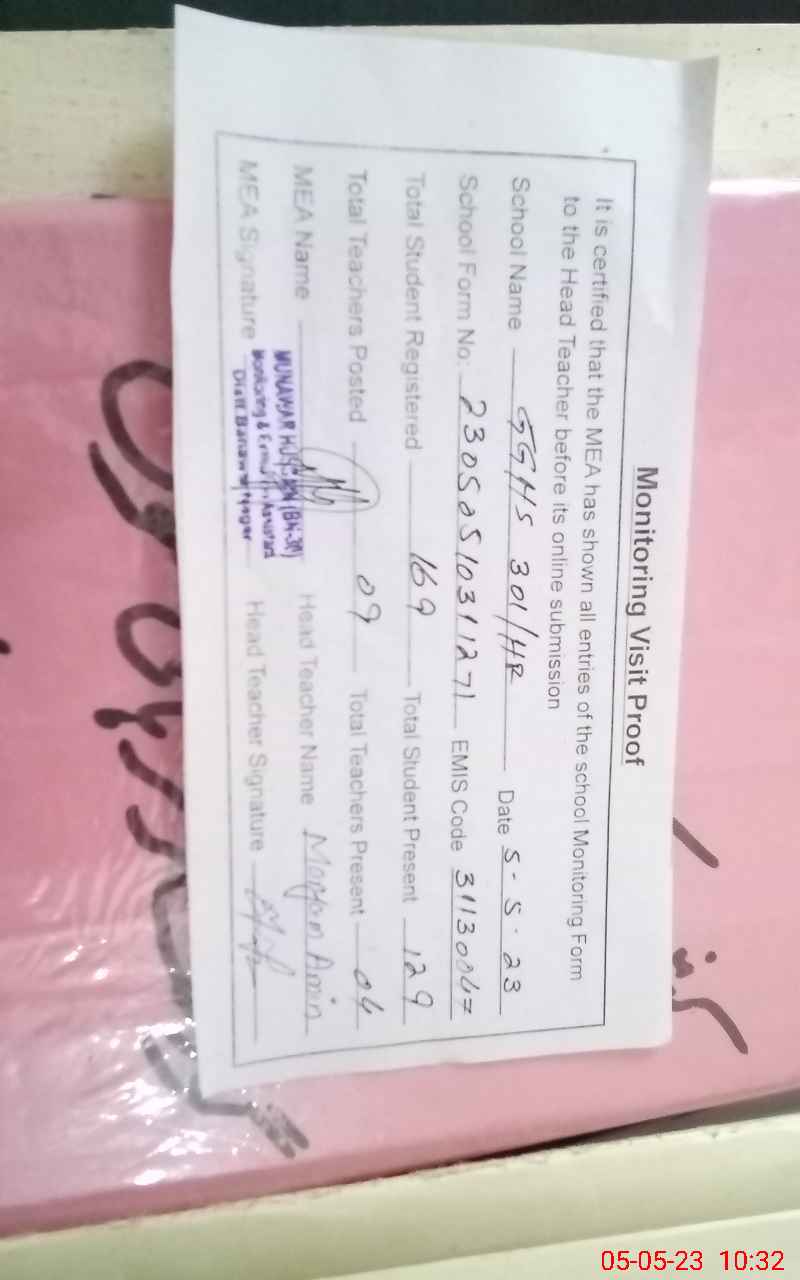 Monitoring Visit Proof
It is certified that the MEA has shown all entries of the school Monitoring Form
to the Head Teacher before its online submission
School Name GGHS 301/HR Date 5-5-23
School Form No: 23050510311271 EMIS Code 31130047
Total Student Registered 169 Total Student Present 129
Total Teachers Posted 09 Total Teachers Present 04
MEA Name MUNAWAR HUSSAIN Head Teacher Name Amin
Monitoring & Assistant
MEA Signature Distt Bahawalnagar Head Teacher Signature
05-05-23 10:32